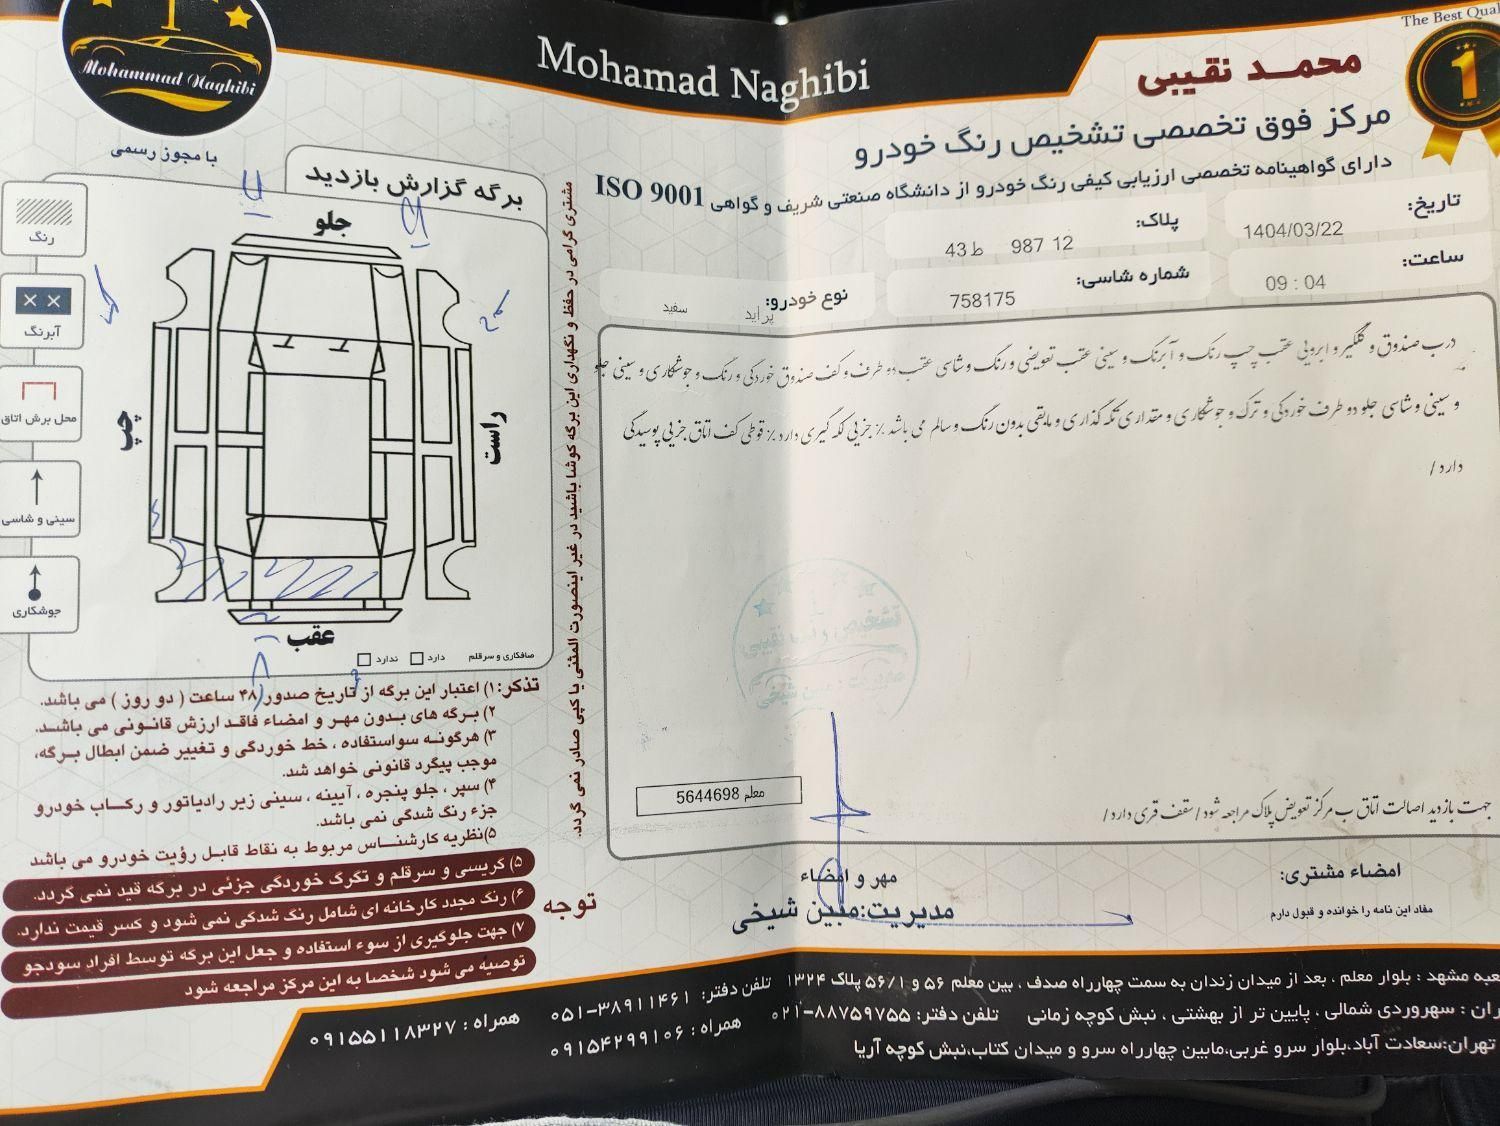 The Best Qual
Mohamad Naghibi
محمـد نقیبی
Mohammad Naghibi
با مجوز رسمی
مرکز فوق تخصصی تشخیص رنگ خودرو
دارای گواهینامه تخصصی ارزیابی کیفی رنگ خودرو از دانشگاه صنعتی شریف و گواهی ISO 9001
تاریخ: 1404/03/22
پلاک: 12 987 ط 43
ساعت: 09 : 04
شماره شاسی: 758175
نوع خودرو: پراید سفید
درب صندوق و گلگیر و ابرویی عقب چپ رنگ و آبرنگ و سینی عقب تعویضی و رنگ و شاسی عقب دو طرف و کف صندوق خوردگی و رنگ و جوشکاری و سینی جلو
و سینی و شاسی جلو دو طرف خوردگی و ترک و جوشکاری و مقداری تکه گذاری و مابقی بدون رنگ و سالم می باشد ٪ جزیی لکه گیری دارد ٪ قوطی کف اتاق جزیی پوسیدگی
دارد /
تشخیص رنگ نقیبی
مبین شیخی
معلم 5644698
جهت بازدید اصالت اتاق ب مرکز تعویض پلاک مراجعه شود / سقف قری دارد /
امضاء مشتری:
مفاد این نامه را خوانده و قبول دارم
مهر و امضاء
مدیریت: مبین شیخی
مشتری گرامی در حفظ و نگهداری این برگه کوشا باشید در غیر اینصورت المثنی یا کپی صادر نمی گردد.
برگه گزارش بازدید
جلو
چپ
راست
عقب
صافکاری و سرقلم دارد ندارد
رنگ
آبرنگ
محل برش اتاق
سینی و شاسی
جوشکاری
تذکر: ۱) اعتبار این برگه از تاریخ صدور ۴۸ ساعت ( دو روز ) می باشد.
۲) برگه های بدون مهر و امضاء فاقد ارزش قانونی می باشد.
۳) هرگونه سواستفاده ، خط خوردگی و تغییر ضمن ابطال برگه،
موجب پیگرد قانونی خواهد شد.
۴) سپر ، جلو پنجره ، آیینه ، سینی زیر رادیاتور و رکاب خودرو
جزء رنگ شدگی نمی باشد.
۵)نظریه کارشناس مربوط به نقاط قابل رؤیت خودرو می باشد
۵) گریسی و سرقلم و تگرگ خوردگی جزئی در برگه قید نمی گردد.
۶) رنگ مجدد کارخانه ای شامل رنگ شدگی نمی شود و کسر قیمت ندارد.
۷) جهت جلوگیری از سوء استفاده و جعل این برگه توسط افراد سودجو
توصیه می شود شخصا به این مرکز مراجعه شود
توجه
عبه مشهد : بلوار معلم ، بعد از میدان زندان به سمت چهارراه صدف ، بین معلم ۵۶ و ۵۶/۱ پلاک ۱۳۲۴ تلفن دفتر: ۰۵۱-۳۸۹۱۱۴۶۱ همراه : ۰۹۱۵۵۱۱۸۳۲۷
ران : سهروردی شمالی ، پایین تر از بهشتی ، نبش کوچه زمانی تلفن دفتر: ۰۲۱-۸۸۷۵۹۷۵۵ همراه : ۰۹۱۵۴۲۹۹۱۰۶
تهران:سعادت آباد،بلوار سرو غربی،مابین چهارراه سرو و میدان کتاب،نبش کوچه آریا